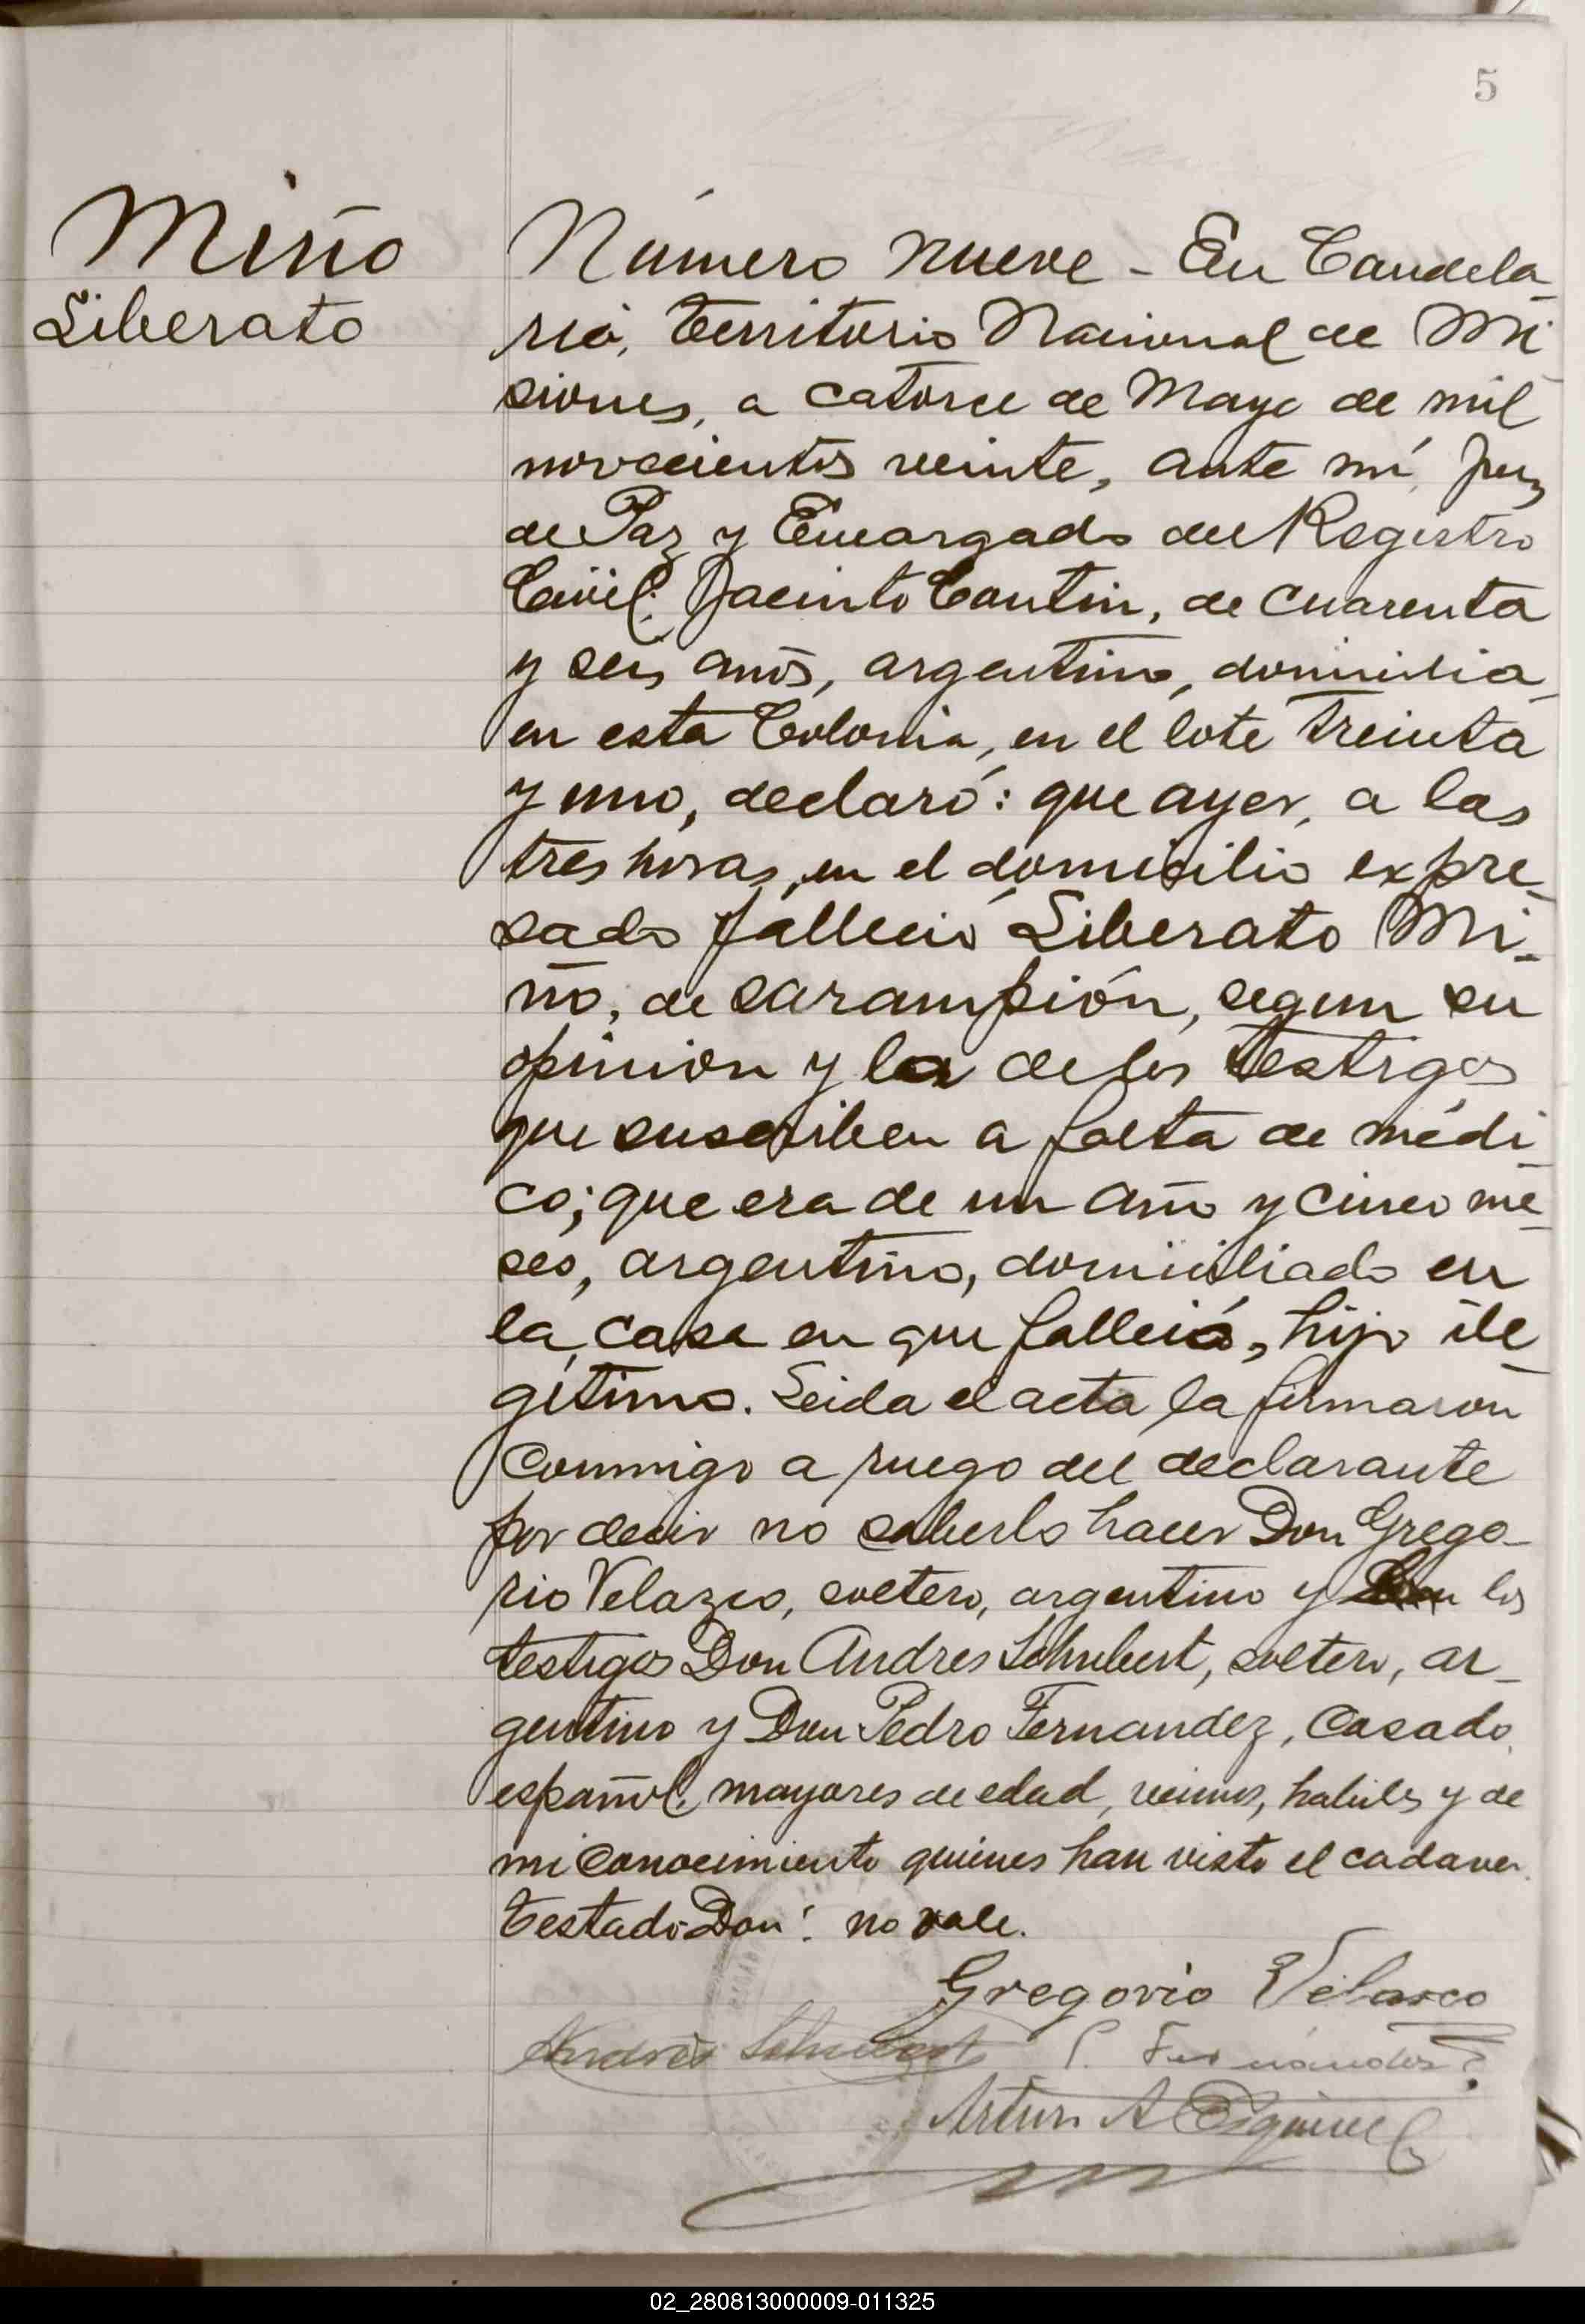 5
Miño
Liberato
Número nueve - En Candela
ria, territorio Nacional de Mi
siones, a catorce de Mayo de mil
novecientos veinte, ante mí, Juez
de Paz y Encargado del Registro
Civil, Jacinto Cantin, de cuarenta
y seis años, argentino, domicilia
en esta Colonia, en el lote treinta
y uno, declaró: que ayer, a las
tres horas, en el domicilio expre-
sado falleció Liberato Mi-
ño, de sarampión, segun su
opinion y la de los testigos
que suscriben a falta de médi
co; que era de un año y cinco me
ses, argentino, domiciliado en
la casa en que falleció, hijo ile
gitimo. Leida el acta la firmaron
conmigo a ruego del declarante
por decir no saberlo hacer Don Grego-
rio Velazco, soltero, argentino y Don los
testigos Don Andres Schubert, soltero, ar-
gentino y Don Pedro Fernandez, casado,
español, mayores de edad, vecinos, habiles y de
mi conocimiento quienes han visto el cadaver.
Testado Don: no vale.
Gregorio Velasco
Andrés Schubert P. Fernández
Arturo A Esquivel
02_280813000009-011325